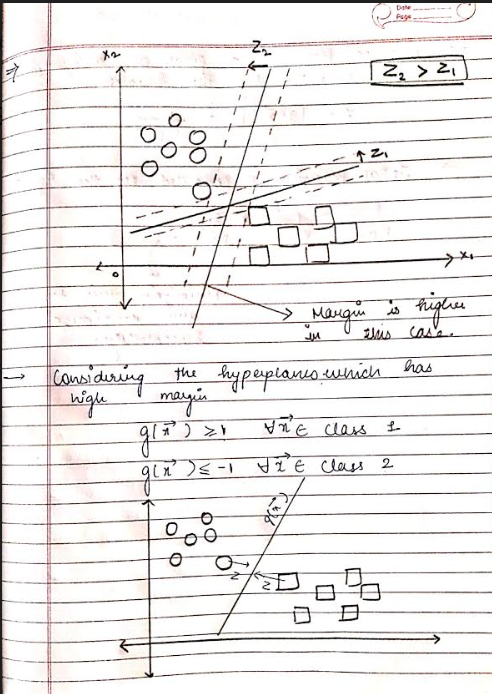 Date
Page
x₂
Z₂
Z₂ > Z₁
Z₁
0
x₁
Margin is higher
in this case.
→ Considering the hyperplanes which has
high margin
g(x⃗) ≥ 1 ∀x⃗ ∈ class 1
g(x⃗) ≤ -1 ∀x⃗ ∈ class 2
g(x⃗)
Z
Z